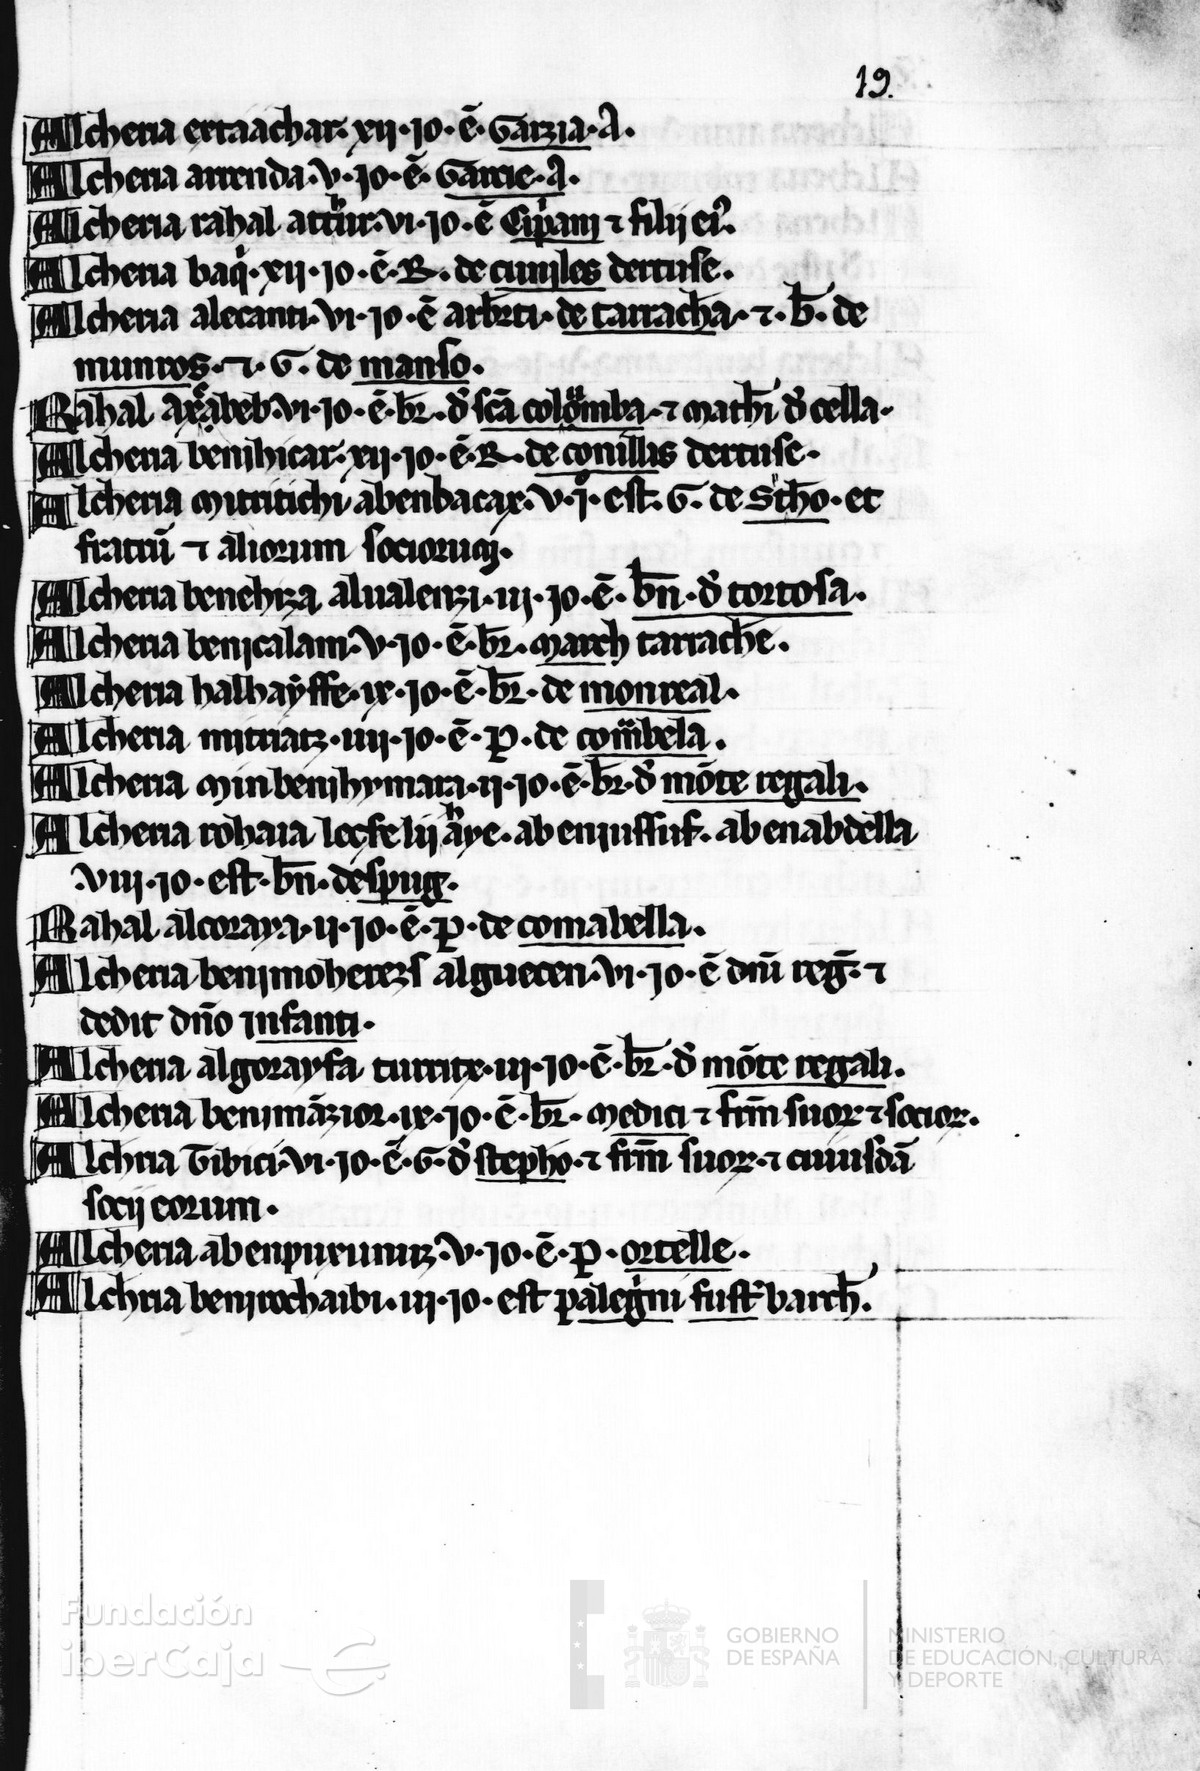 19.
Alcheria extaachar· xij · io · ē · Garzia · A ·
Alcheria arrenda · v · io · ē · Garcie · A ·
Alcheria rahal · vi · io · ē Cip̄ani ⁊ filij ei⁹.
Alcheria baq̇ · xij · io · ē · R · de cuniles dertuse ·
Alcheria alecanti · vi · io · ē arb̄rti · de tarracha · ⁊ · b̄ · de
muntos · ⁊ · G · de manso ·
Rahal · vi · io · ē · br̄ · d̓ sc̄a colomba · ⁊ math̄i d̓ cella ·
Alcheria benihicar · xij · io · ē · R · de conillis dertuse ·
Alcheria mitritichi abenbacax · v · i° · est · G · de st̓ho · et
fratrū ⁊ aliorum socioruꝫ ·
Alcheria benehiza alualenzi · iij · io · ē · bn̄ · d̓ tortosa ·
Alcheria benicalam · v · io · ē · br̄ · march tarrache ·
Alcheria halhaẏffe · ix · io · ē · br̄ · de monreal ·
Alcheria mitriatz · iiij · io · ē · P · de combela ·
Alcheria min benihymara · ij · io · ē · br̄ · d̓ mōte regali ·
Alcheria rohaia aye · abeniussuf · abenabdella
viii · io · est · bn̄ · despug ·
Rahal alcoraya · ij · io · ē · P · de comabella ·
Alcheria benimoherezs alguecen · vi · io · ē dn̄i reḡ · ⁊
dedit dn̄o infanti ·
Alcheria algorayfa turrite · iij · io · ē · br̄ · d̓ mōte regali ·
Alcheria benimāzior · ix · io · ē · br̄ · medici ⁊ fr̄m suoꝝ ⁊ socioꝝ ·
Alchria Tibici · vi · io · ē · G · d̓ stepho · ⁊ fr̄m suoꝝ · ⁊ cuiusdā
socij eorum ·
Alcheria abenpuxuniz · v · io · ē · P · ortelle ·
Alchria benirochaibi · iij · io · est palegṙni fust̓ barch̄ ·
Fundación
iberCaja
GOBIERNO
DE ESPAÑA
MINISTERIO
DE EDUCACIÓN, CULTURA
Y DEPORTE